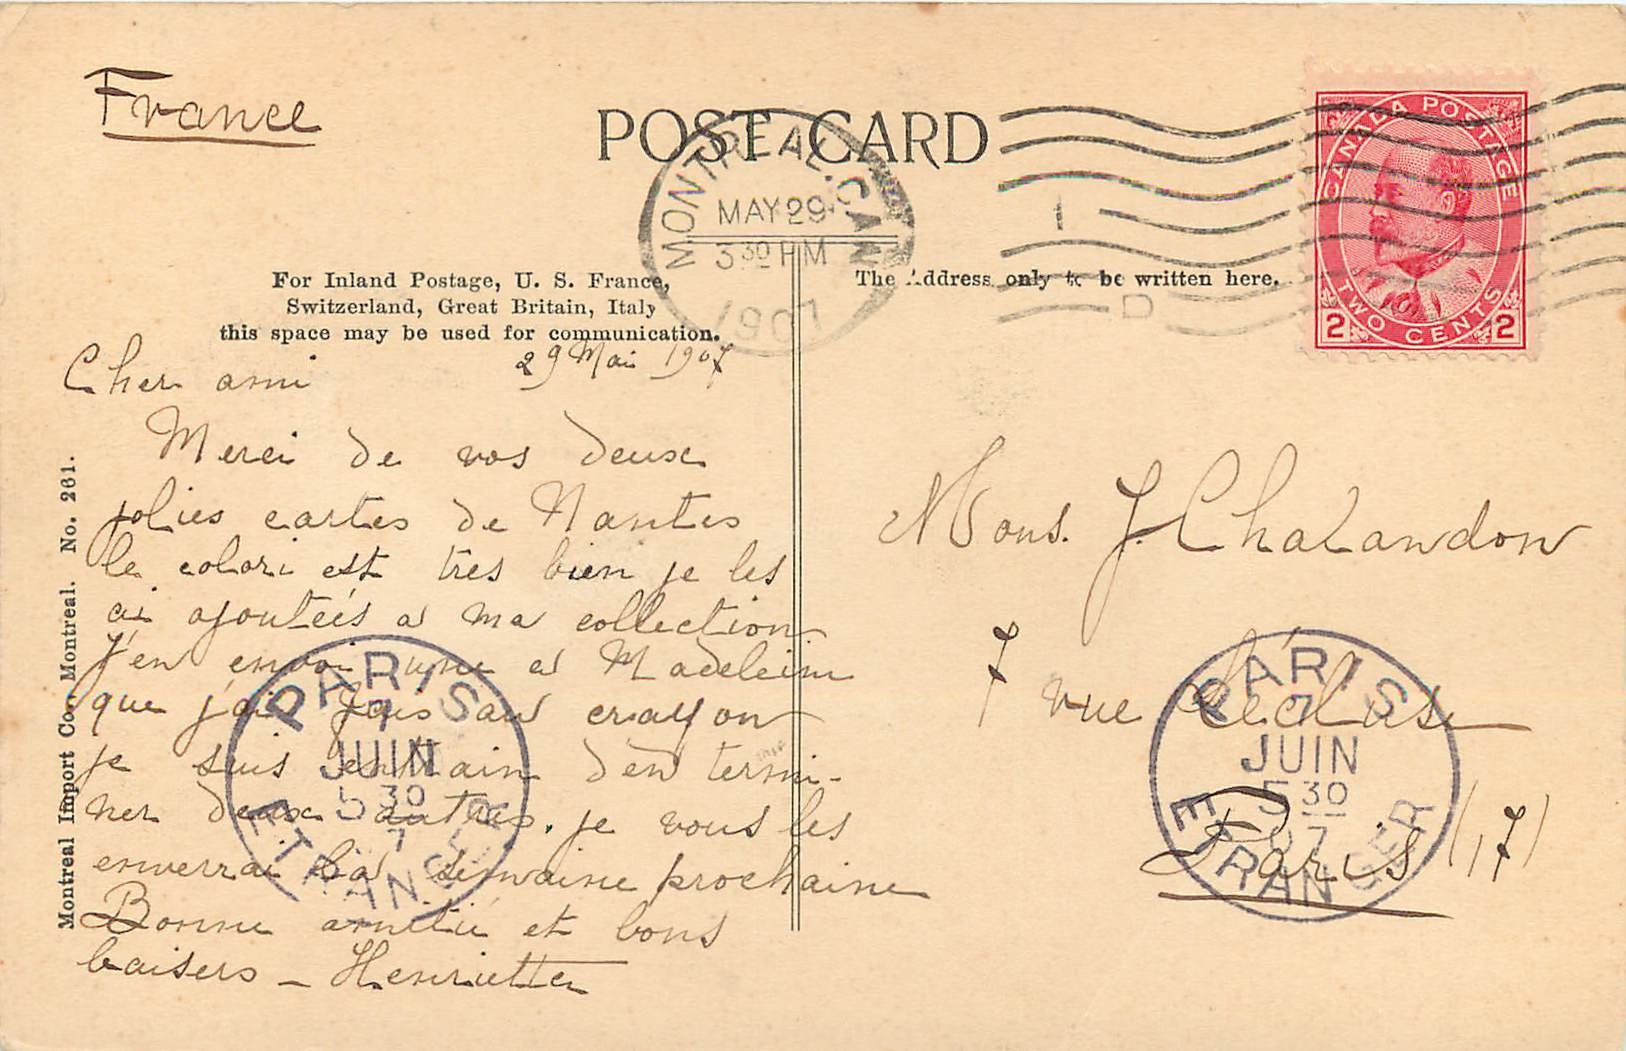 France
POST CARD
MONTREAL. CAN
MAY 29
3 30 PM
1907
CANADA POSTAGE
TWO CENTS
2 2
For Inland Postage, U. S. France,
Switzerland, Great Britain, Italy
this space may be used for communication.
The Address only to be written here.
29 Mai 1907
Cher ami
Merci de vos deux
jolies cartes de Nantes
le colori est très bien je les
ai ajoutées a ma collection
J'en envoi une a Madeleine
que j'ai fais au crayon
je suis entrain d'en termi-
ner deux autres. je vous les
enverrai la semaine prochaine
Bonne amitié et bons
baisers - Henriette
Mons. J. Chalandon
7 rue Lécluse
Paris (17)
PARIS
7
JUIN
5 30
07
ETRANGER
PARIS
7
JUIN
5 30
7
ETRANGER
Montreal Import Co. Montreal. No. 261.